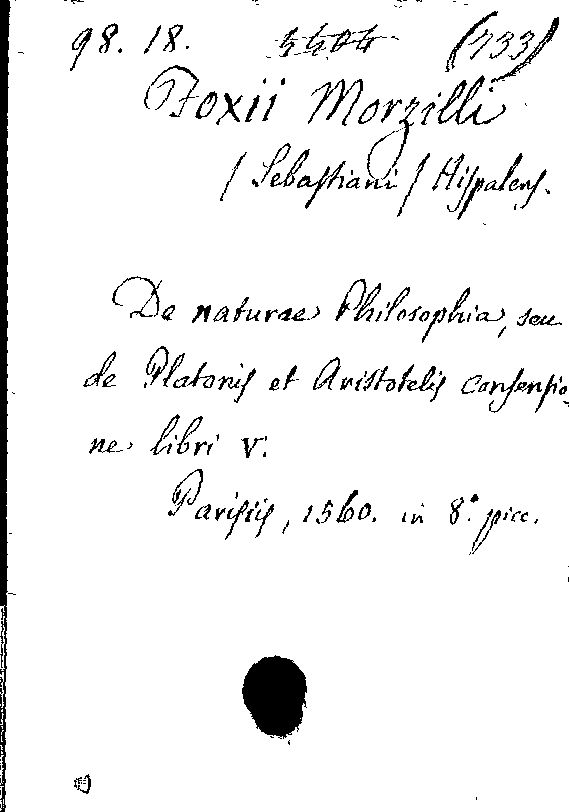 98. 18. 5504 (733)
Foxii Morzilli
/ Sebastiani / Hispalens.
De naturae Philosophia, seu
de Platonis et Aristotelis consensio-
ne libri V.
Parisiis, 1560. in 8.° picc.